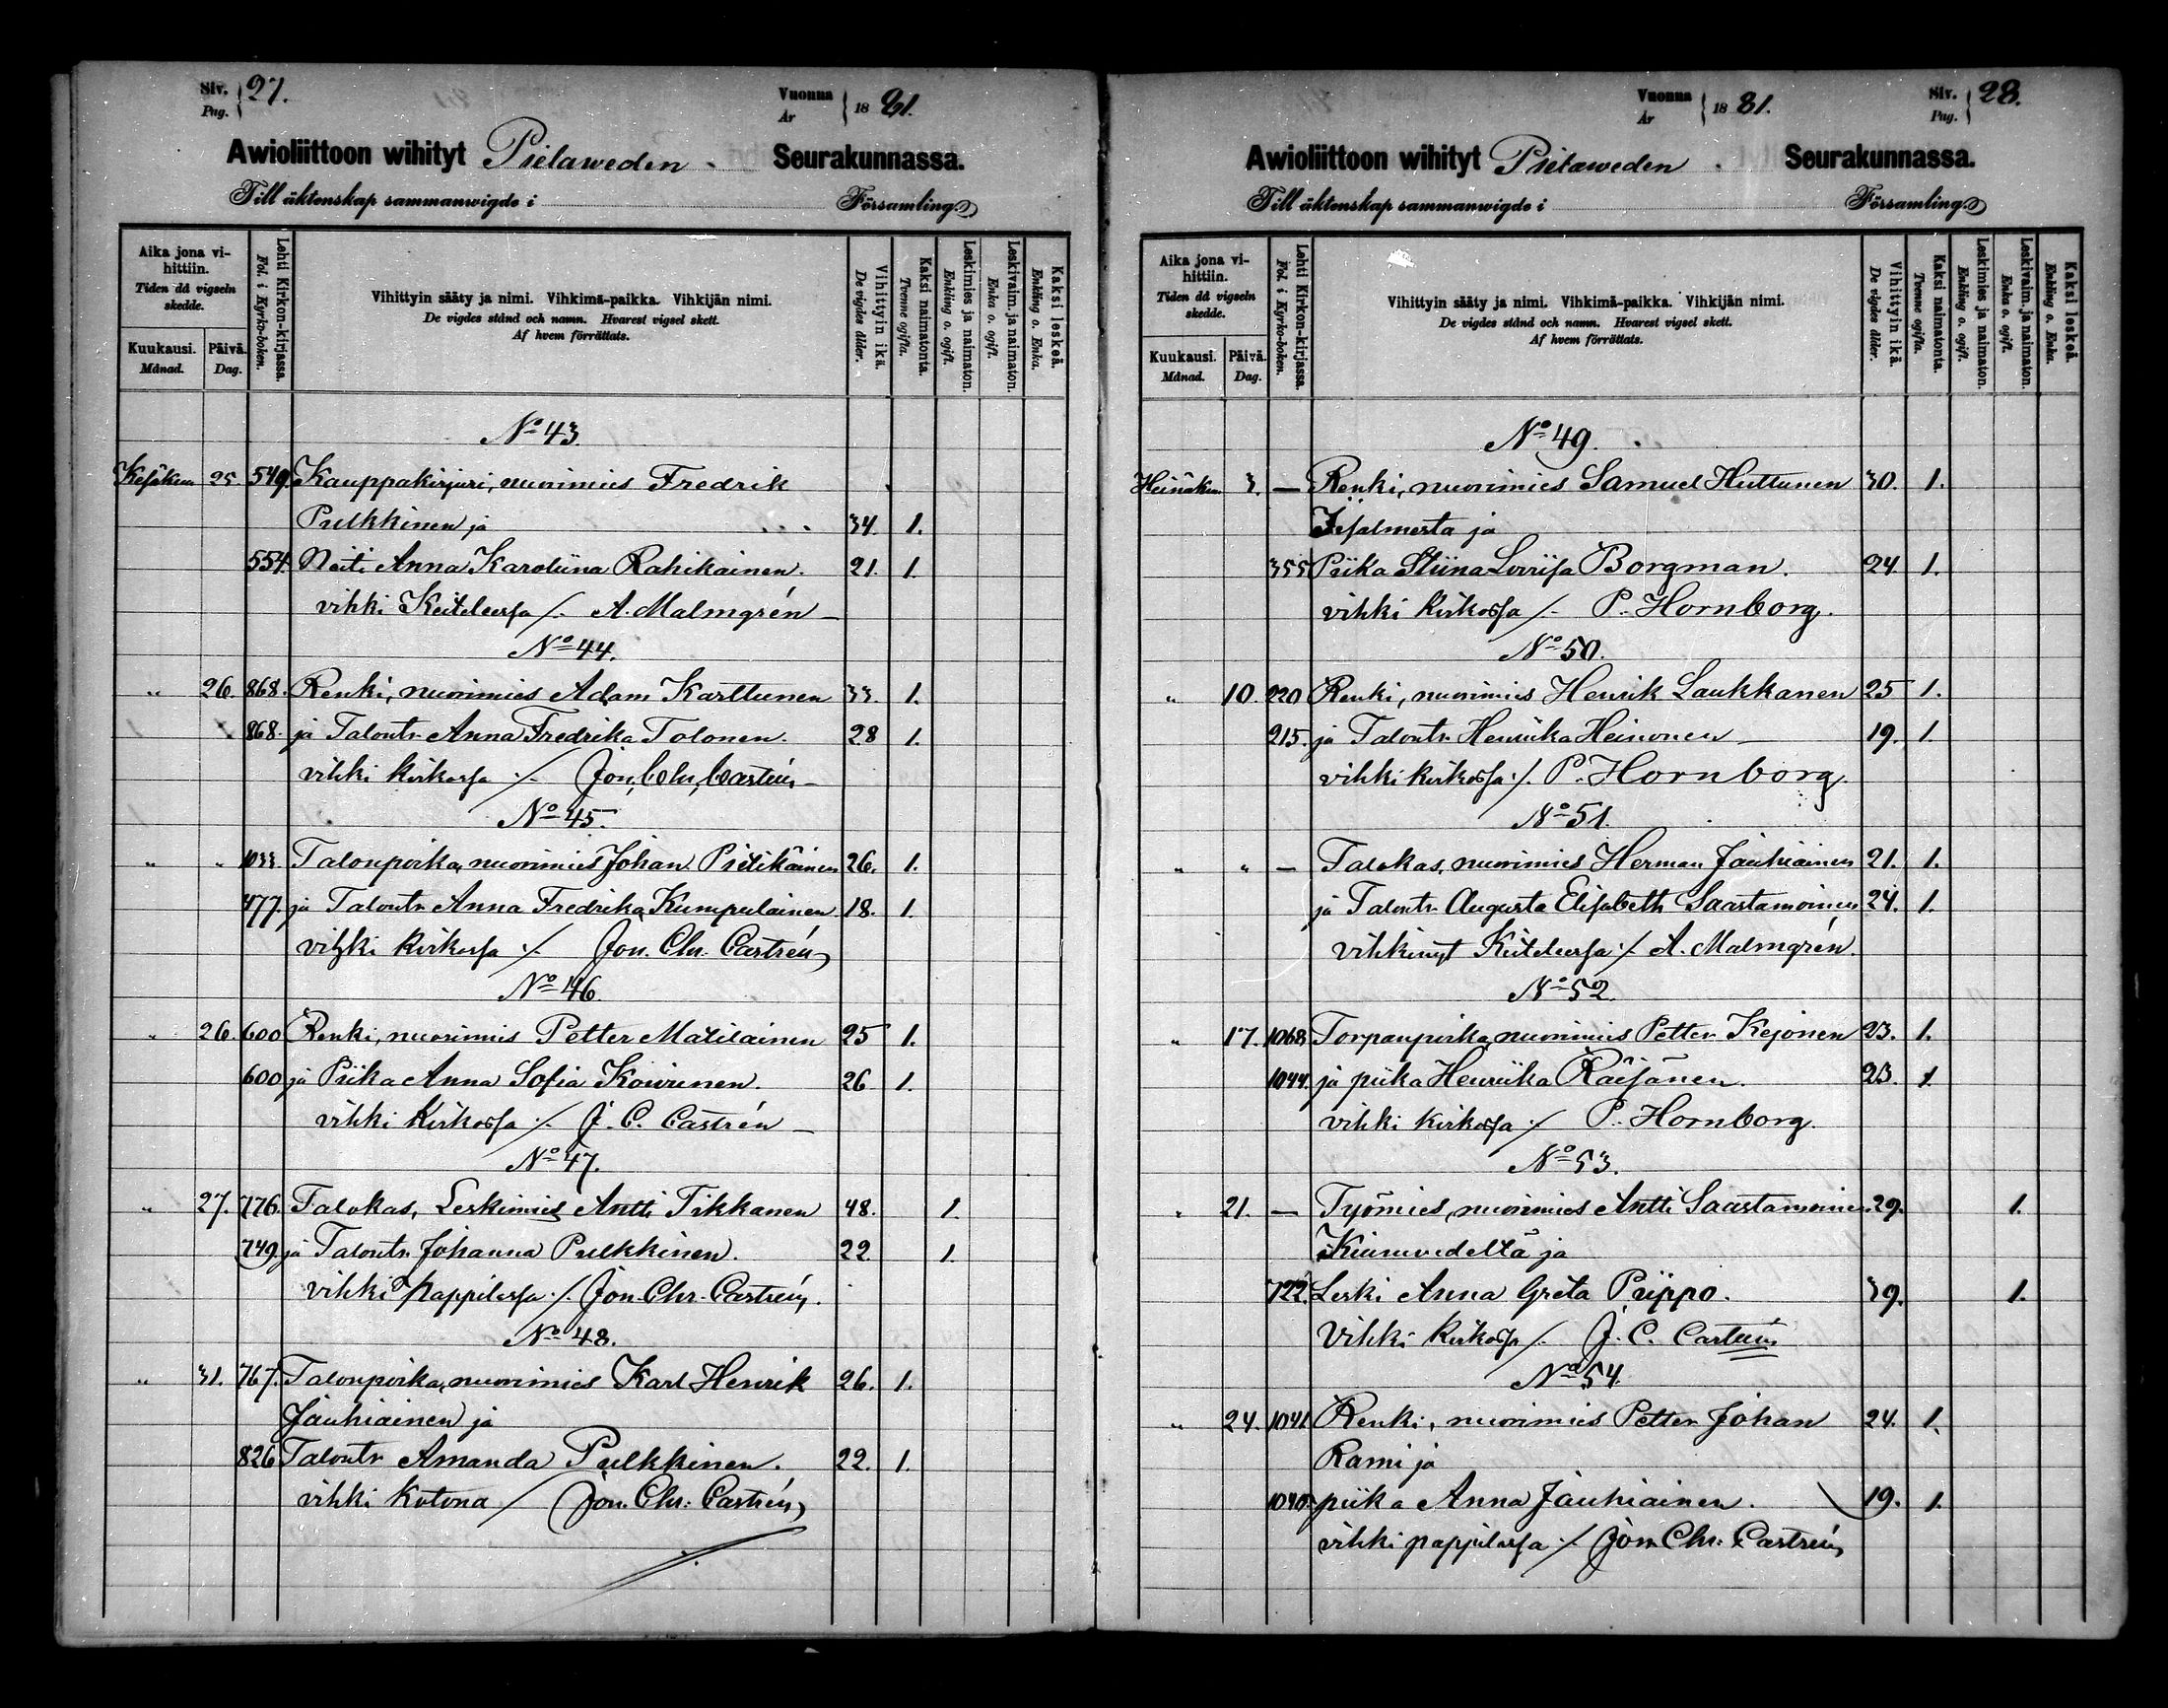 Siv. Pag. 27.
Vuonna År 1881.
Awioliittoon wihityt Pielaweden Seurakunnassa.
Till äktenskap sammanwigde i Församling.
Aika jona vihittiin. Tiden då vigseln skedde.
Kuukausi. Månad.
Päivä. Dag.
Lehti Kirkon-kirjassa. Fol. i Kyrko-boken.
Vihittyin sääty ja nimi. Vihkimä-paikka. Vihkijän nimi.
De vigdes stånd och namn. Hvarest vigsel skett.
Af hvem förrättats.
Vihittyin ikä. De vigdes ålder.
Kaksi naimatonta. Tvenne ogifta.
Leskimies ja naimaton. Enkling o. ogift.
Leskivaim. ja naimaton. Enka o. ogift.
Kaksi leskeä. Enkling o. Enka.
No 43.
Kesäkuu 25. 549. Kauppakirjuri, nuorimies Fredrik
Pulkkinen ja 34. 1.
554. Neiti Anna Karoliina Rahikainen. 21. 1.
vihki Keiteleessa /. A. Malmgrén
No 44.
" 26. 868. Renki, nuorimies Adam Karttunen 33. 1.
868. ja Talontr Anna Fredrika Tolonen. 28 1.
vihki kirkossa ./. Jon. Chr. Castrén
No 45.
" " 1033. Talonpoika, nuorimies Johan Pietikäinen 26. 1.
477. ja Talontr Anna Fredrika Kumpulainen. 18. 1.
vihki kirkossa ./. Jon. Chr. Castrén
No 46.
" 26. 600 Renki, nuorimies Petter Matilainen 25 1.
600 ja Piika Anna Sofia Kowinen. 26 1.
vihki kirkossa ./. J. C. Castrén
No 47.
" 27. 776. Talokas, Leskimies Antti Tikkanen 48. 1.
749. ja Talontr. Johanna Pulkkinen. 22 1.
vihki Pappilassa ./. Jon. Chr. Castrén.
No 48.
" 31. 767. Talonpoika, nuorimies Karl Henrik 26. 1.
Jauhiainen ja
826 Talontr Amanda Pulkkinen. 22. 1.
vihki kotona / Jon. Chr. Castrén
Vuonna År 1881.
Siv. Pag. 28.
Awioliittoon wihityt Pielaweden Seurakunnassa.
Till äktenskap sammanwigde i Församling.
Aika jona vihittiin. Tiden då vigseln skedde.
Kuukausi. Månad.
Päivä. Dag.
Lehti Kirkon-kirjassa. Fol. i Kyrko-boken.
Vihittyin sääty ja nimi. Vihkimä-paikka. Vihkijän nimi.
De vigdes stånd och namn. Hvarest vigsel skett.
Af hvem förrättats.
Vihittyin ikä. De vigdes ålder.
Kaksi naimatonta. Tvenne ogifta.
Leskimies ja naimaton. Enkling o. ogift.
Leskivaim. ja naimaton. Enka o. ogift.
Kaksi leskeä. Enkling o. Enka.
No 49.
Heinäkuu 3. — Renki, nuorimies Samuel Huttunen 30. 1.
Iisalmesta ja
355 Piika Stiina Loviisa Borgman. 24 1.
vihki kirkossa /. P. Hornborg.
No 50.
" 10. 220 Renki, nuorimies Henrik Laukkanen 25 1.
215. ja Talontr. Henriika Heinonen 19. 1.
vihki kirkossa ./. P. Hornborg.
No 51.
" " — Talokas, nuorimies Herman Jauhiainen 21. 1.
ja Talontr. Augusta Elisabeth Saastamoinen 24. 1.
vihkinyt Keiteleessa ./. A. Malmgrén.
No 52.
" 17. 1068 Torpanpoika, nuorimies Petter Kejonen 23. 1.
1044. ja piika Henriika Räisänen. 23. 1.
vihki kirkossa ./. P. Hornborg.
No 53.
" 21. — Työmies, nuorimies Antti Saastamoinen 29. 1.
Kiuruvedeltä ja
722. Leski Anna Greta Piippo. 39. 1.
Vihki kirkossa /. J. C. Castrén
No 54.
" 24. 1041. Renki, nuorimies Petter Johan 24. 1.
Rami ja
1040. piika Anna Jauhiainen. 19. 1.
vihki pappilassa ./. Jon. Chr. Castrén